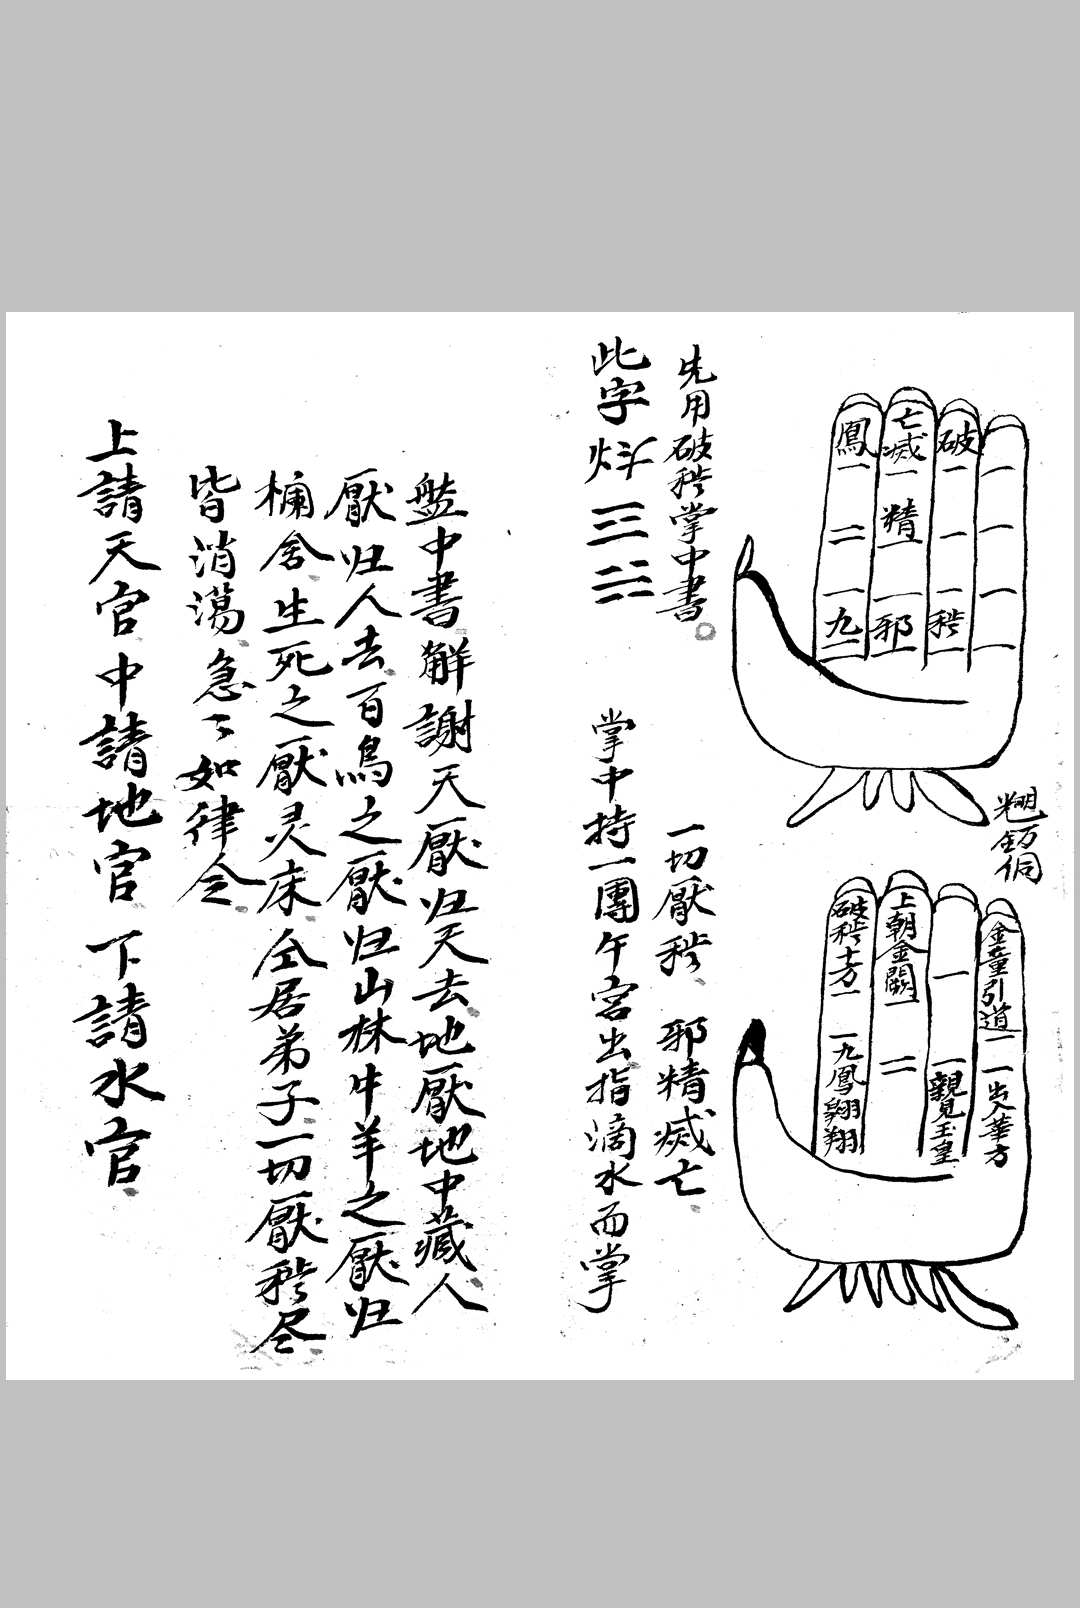 破
一
一
一
穢
亡滅
一
精
一
一
邪
一
鳳
一
二
一
九
二
金童引道
一
一
出入華方
一
一
親見玉皇
上朝金闕
一
二
破穢十方
一
一
九鳳翱翔
先用破穢掌中書。
一切厭穢 邪精滅亡
此字 三
掌中持一團午宮出指滴水而掌
盤中書解謝天厭归天去地厭地中藏人
厭归人去百鳥之厭归山林牛羊之厭归
欄舍生死之厭灵床仝居弟子一切厭穢尽
皆消蕩急々如律令
上請天官中請地官下請水官